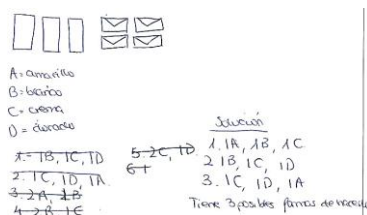 A = amarillo
B = blanco
C = crema
D = dorado
1.- 1B, 1C, 1D
2. 1C, 1D, 1A
3. 2A, 1B
4. 2B, 1C
5. 2C, 1D
6 1
Solución
1. 1A, 1B, 1C
2 1B, 1C, 1D
3. 1C, 1D, 1A
Tiene 3 posibles formas de hacerlo